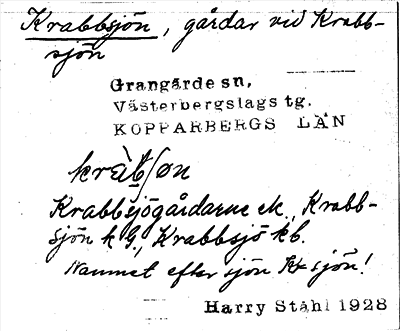 Krabbsjön, gårdar vid Krabb-
sjön
Grangärde sn,
Västerbergslags tg.
KOPPARBERGS LÄN
Krabbsjögårdarne ek., Krabb-
sjön kg., Krabbsjö kb.
Namnet efter sjön Kr-sjön!
Harry Ståhl 1928